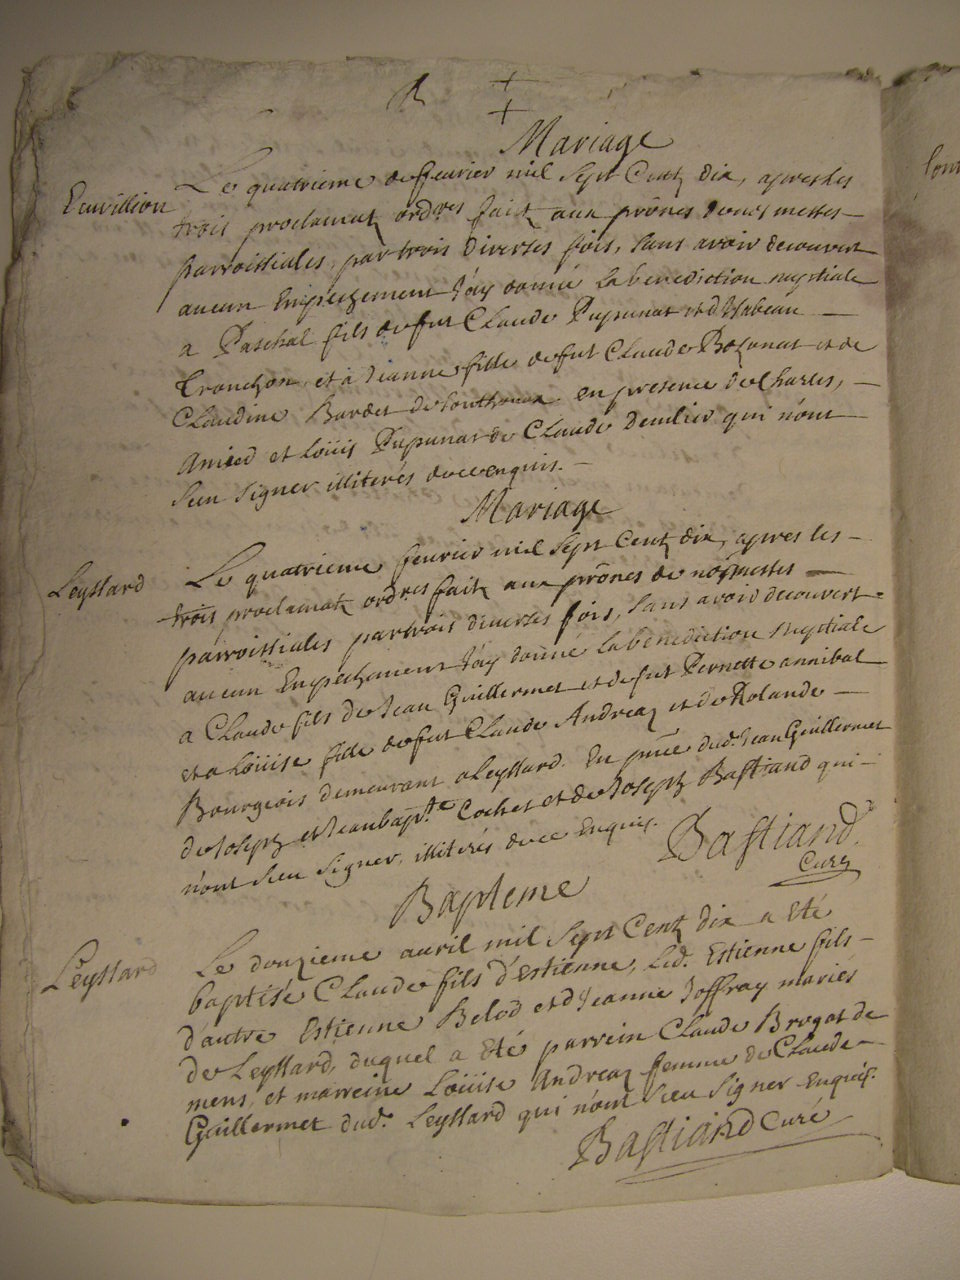 Mariage
Le quatrieme de feurier mil Sept Centz dix, apres les
Emvillion
trois proclamatz ordres faitz aux prônes de nos messes
parroissiales, par trois diverses fois, sans avoir decouvert
aucun Empechement J'ay donné la benediction nuptiale
a Paschal fils de fut Claude Pupunat et d'Ysabeau
Tronchon, et à Jeanne fille de fut Claude Bozonat et de
Claudine Bardet de en presence de Charles,
Amied et Loüis Pupunat de Claude qui n'ont
sceu signer illiterés de ce enquis.
Mariage
Le quatrieme feurier mil Sept Centz dix, apres les
Leyssard
trois proclamatz ordres faitz aux prônes de nos messes
parroissiales par trois diverses fois, sans avoir decouvert
aucun Empechement J'ay donné la benediction nuptiale
a Claude fils de Jean Guillermet et de fut Pernette annibal
et a Loüise fille de fut Claude Andreaz et de Rolande
Bourgeois demeurant a Leyssard. En pñce dud. Jean Guillermet
de Joseph et Jean bapte. Cochet et de Joseph Bastiand qui
n'ont sceu signer, illiterés de ce Enquis.
Bastiand
Curé
Bapteme
Le douzieme auril mil Sept Centz dix a Eté
Leyssard
baptisé Claude fils d'Estienne, Lud. Estienne fils
d'autre Estienne Belod et d'Jeanne Joffray mariés
de Leyssard, duquel a Eté parrein Claude Brogat de
mens, et marreine Loüise Andreaz femme de Claude
Guillermet dud. Leyssard qui n'ont sceu signer Enquis.
Bastiand Curé